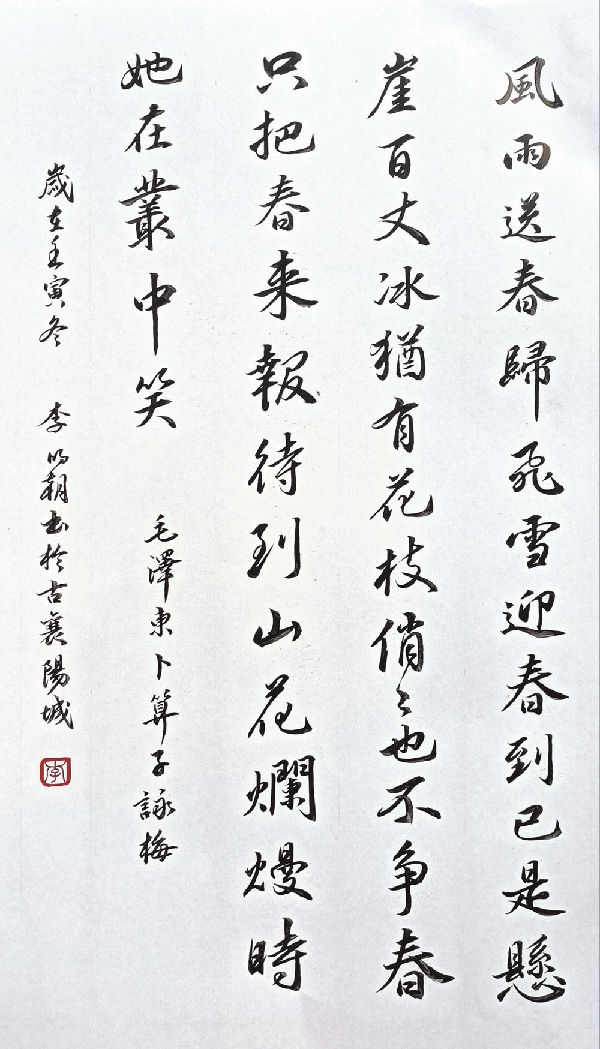 風雨送春歸飛雪迎春到已是懸
崖百丈冰猶有花枝俏〻也不争春
只把春来報待到山花爛熳時
她在叢中笑
毛澤東卜算子詠梅
歲在壬寅冬 李明朝書於古襄陽城
李